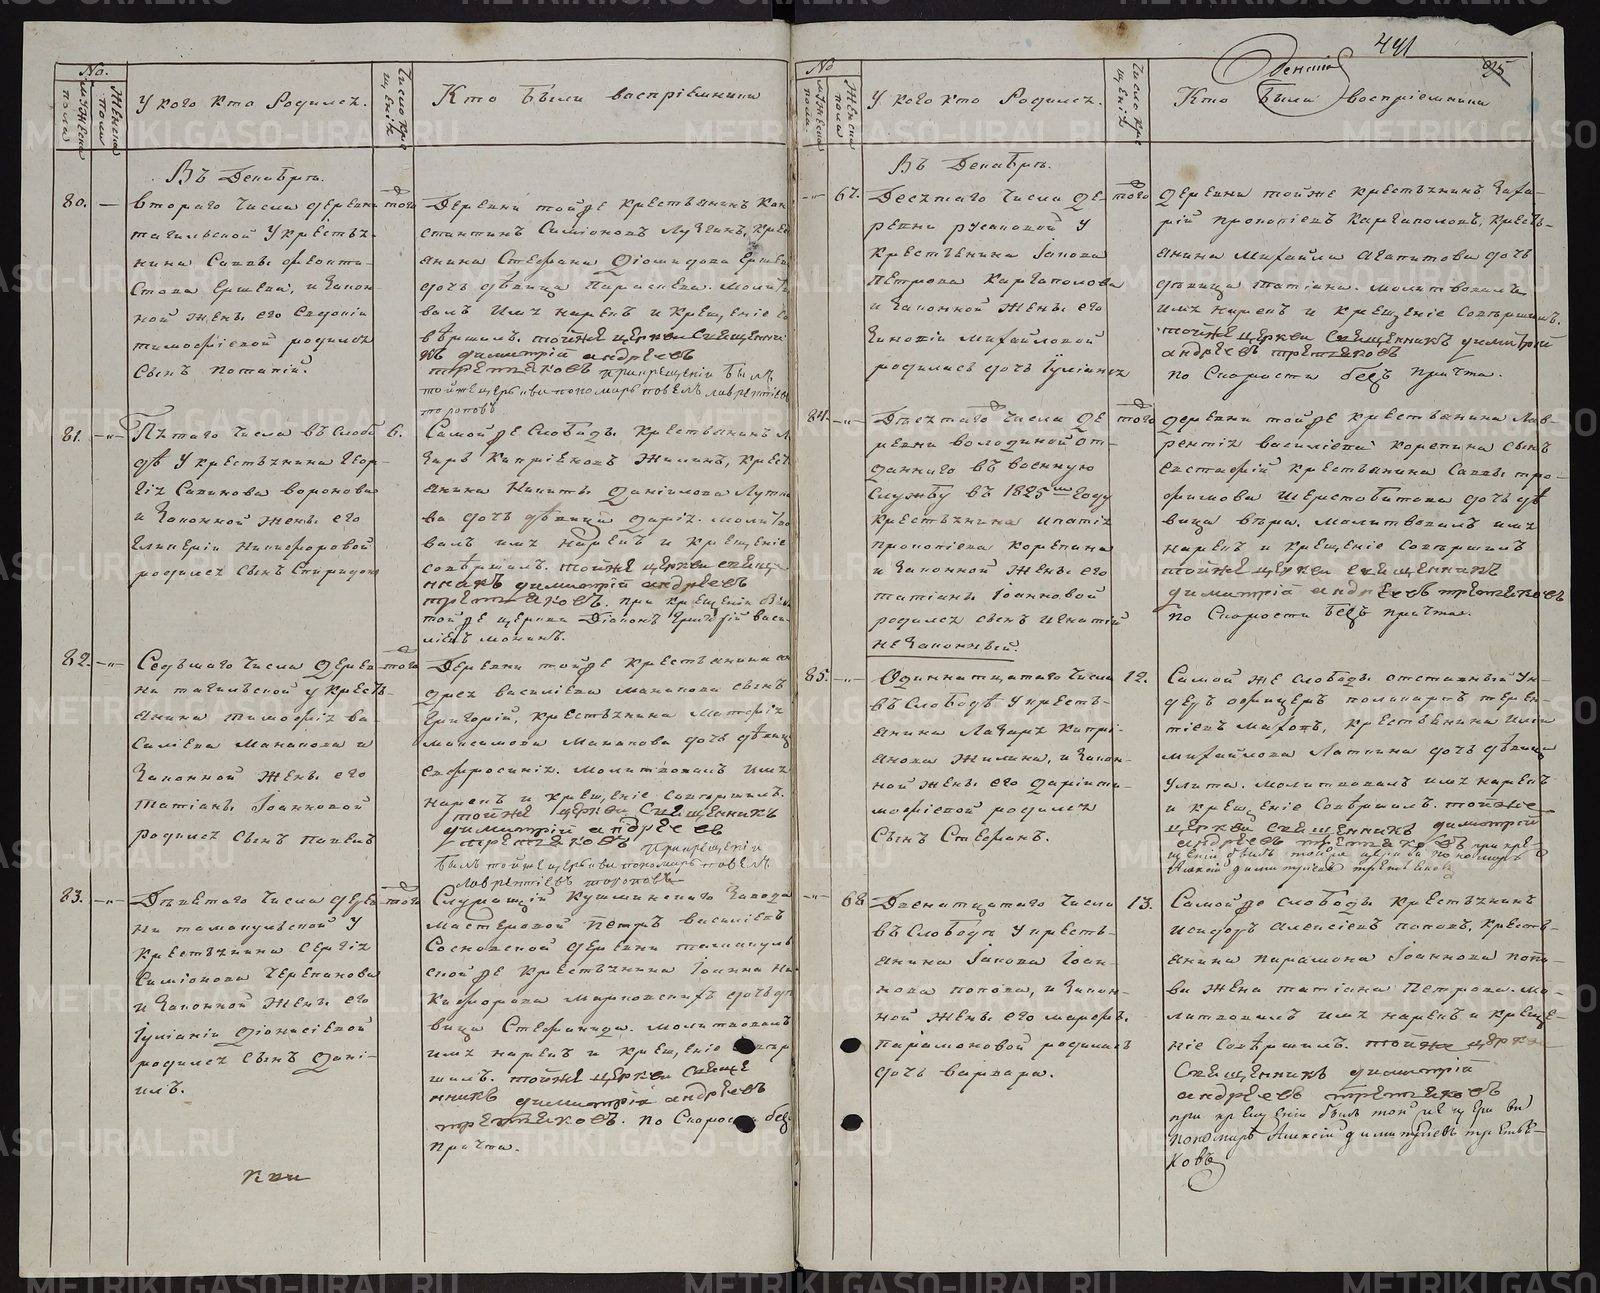 No.
мужеска пола
Женска пола
У кого кто Родился.
Число крещенія.
Кто были воспріемники
Въ Декабрѣ.
80. —
втораго числа деревни
тагильской У крестья-
нина Саввы Ѳеокти-
стова Ершева, и закон-
ной жены его Евдокіи
тимофѣевой родился
сынъ Потапій.
того
Деревни тойже крестьянинъ Кон
стантинъ Симіоновъ Лузгинъ, крест
янина Стефана Діомидова Ершева
дочь дѣвица Параскева. молит
валъ имя нарекъ и крещеніе со
вершилъ. тойже церкви Священни
къ димитрій андреевъ
третьяковъ при крещеніи былъ
тойже церкви пономарь павелъ лаврентіевъ
топорковъ
81. —"—
Пятаго числа въ слобо
дѣ У крестьянина Геор-
гія Савинова воронова
и законной жены его
Гликеріи Никифоровой
родился сынъ Спиридонъ
6.
Самой же Слободы крестьянинъ Л
азарь Кипріяновъ Жилинъ, крест
янина Никиты Даніилова Лутки
ва дочь дѣвица дарія. молитво
валъ имя нарекъ и крещеніе
совѣршилъ. тойже церкви свяще
нникъ димитрій андреевъ
третьяковъ. при крещеніи былъ
тойже церкви Діаконъ Григорій васи
ліевъ
82. —"—
Седьмаго числа дерев
ни тагильской у кресть-
янина тимофѣя ва-
силіева Манакова и
законной жены его
татіаны Іоанновой
родился сынъ Павелъ
того
Деревни тойже крестьянина ан
дрея василіева манакова сынъ
Григорій, крестьянина Матфея
максимова Манакова дочь дѣвица
евфросинія. молитвовалъ имя
нарекъ и крещеніе совершилъ.
тойже церкви Священникъ
димитрій андреевъ
третьяковъ при крещеніи
былъ тойже церкви пономарь павелъ
лаврентіевъ топорковъ
83. —"—
Девятаго числа дерев
ни тамакульской У
крестьянина Сергія
Симіонова Черепанова
и законной жены его
Іуліаніи Діонисіевой
родился сынъ дані-
илъ.
того
Служащій Кушвинскаго завода
мастеровой Петръ василіевъ
Сосновской деревни тамакуль
ской же крестьянина Іоанна Ни
кифорова Марковскихъ дочь дѣ
вица Стефанида. молитвовалъ
имя нарекъ и крещеніе совер
шилъ. тойже церкви свяще
нникъ димитрій андреевъ
третьяковъ. по Скорости безъ
причта.
441
95
No
мужеска пола.
Женска пола
У кого кто Родился.
Число крещенія
Кто были воспріемники
Въ Декабрѣ.
—"— 67.
Десятаго числа де-
ревни русаковой У
крестьянина Іакова
Петрова Каргаполова
и законной жены его
Зиновіи Михайловой
родилась дочь Іуліанія
того
деревни тойже крестьянинъ Заха-
рій Прокопіевъ Каргаполовъ, кресть-
янина Михайла Агапитова дочь
дѣвица татіана. молитвовалъ
имя нарекъ и крещеніе совершилъ.
тойже церкви Священникъ димитрій
андреевъ третьяковъ
по Скорости безъ причта.
84. —"—
Десятаго числа де
ревни володиной от-
даннаго въ военную
службу въ 1825мъ году
крестьянина ипатія
прокопіева корепина
и законной жены его
татіаны Іоанновой
родился сынъ игнатій
незаконный.
того
деревни тойже крестьянина Лав-
рентія василіева корепина сынъ
евстафій крестьянина Саввы тро-
фимова Шерстобитова дочь дѣ
вица вѣра. молитвовалъ имя
нарекъ и крещеніе совершилъ
тойже церкви священникъ
димитрій андреевъ третьяковъ
по Скорости безъ причта.
85. —"—
Одиннатцатаго числа
въ слободѣ У кресть-
янина Лазаря Кипрі-
анова Жилина, и закон-
ной жены его даріи ти-
мофѣевой родился
сынъ Стефанъ.
12.
Самой же слободы отставный Ун-
деръ офицеръ поликарпъ терен-
тіевъ, крестьянина Ильи
михайлова Лапина дочь дѣвица
Улита. молитвовалъ имя нарекъ
и крещеніе совершилъ. тойже
церкви священникъ димитрій
андреевъ третьяковъ при кре-
щеніи былъ тойже церкви пономарь
Алексій димитріевъ третьяковъ
—"— 68
Двенатцатаго числа
въ слободѣ У кресть-
янина Іакова Іоан-
нова попова, и закон-
ной жены его марфы
парамоновой родилась
дочь варвара.
13.
Самой же слободы крестьянинъ
исидоръ алексіевъ поповъ, кресть-
янина парамона Іоаннова попо-
ва жена татіана Петрова. мо-
литвовалъ имя нарекъ и креще-
ніе совѣршилъ. тойже церкви
священникъ димитрій
андреевъ третьяковъ
при крещеніи былъ тойже церкви
пономарь Алексій димитріевъ третья-
ковъ
METRIKI.GASO-URAL.RU